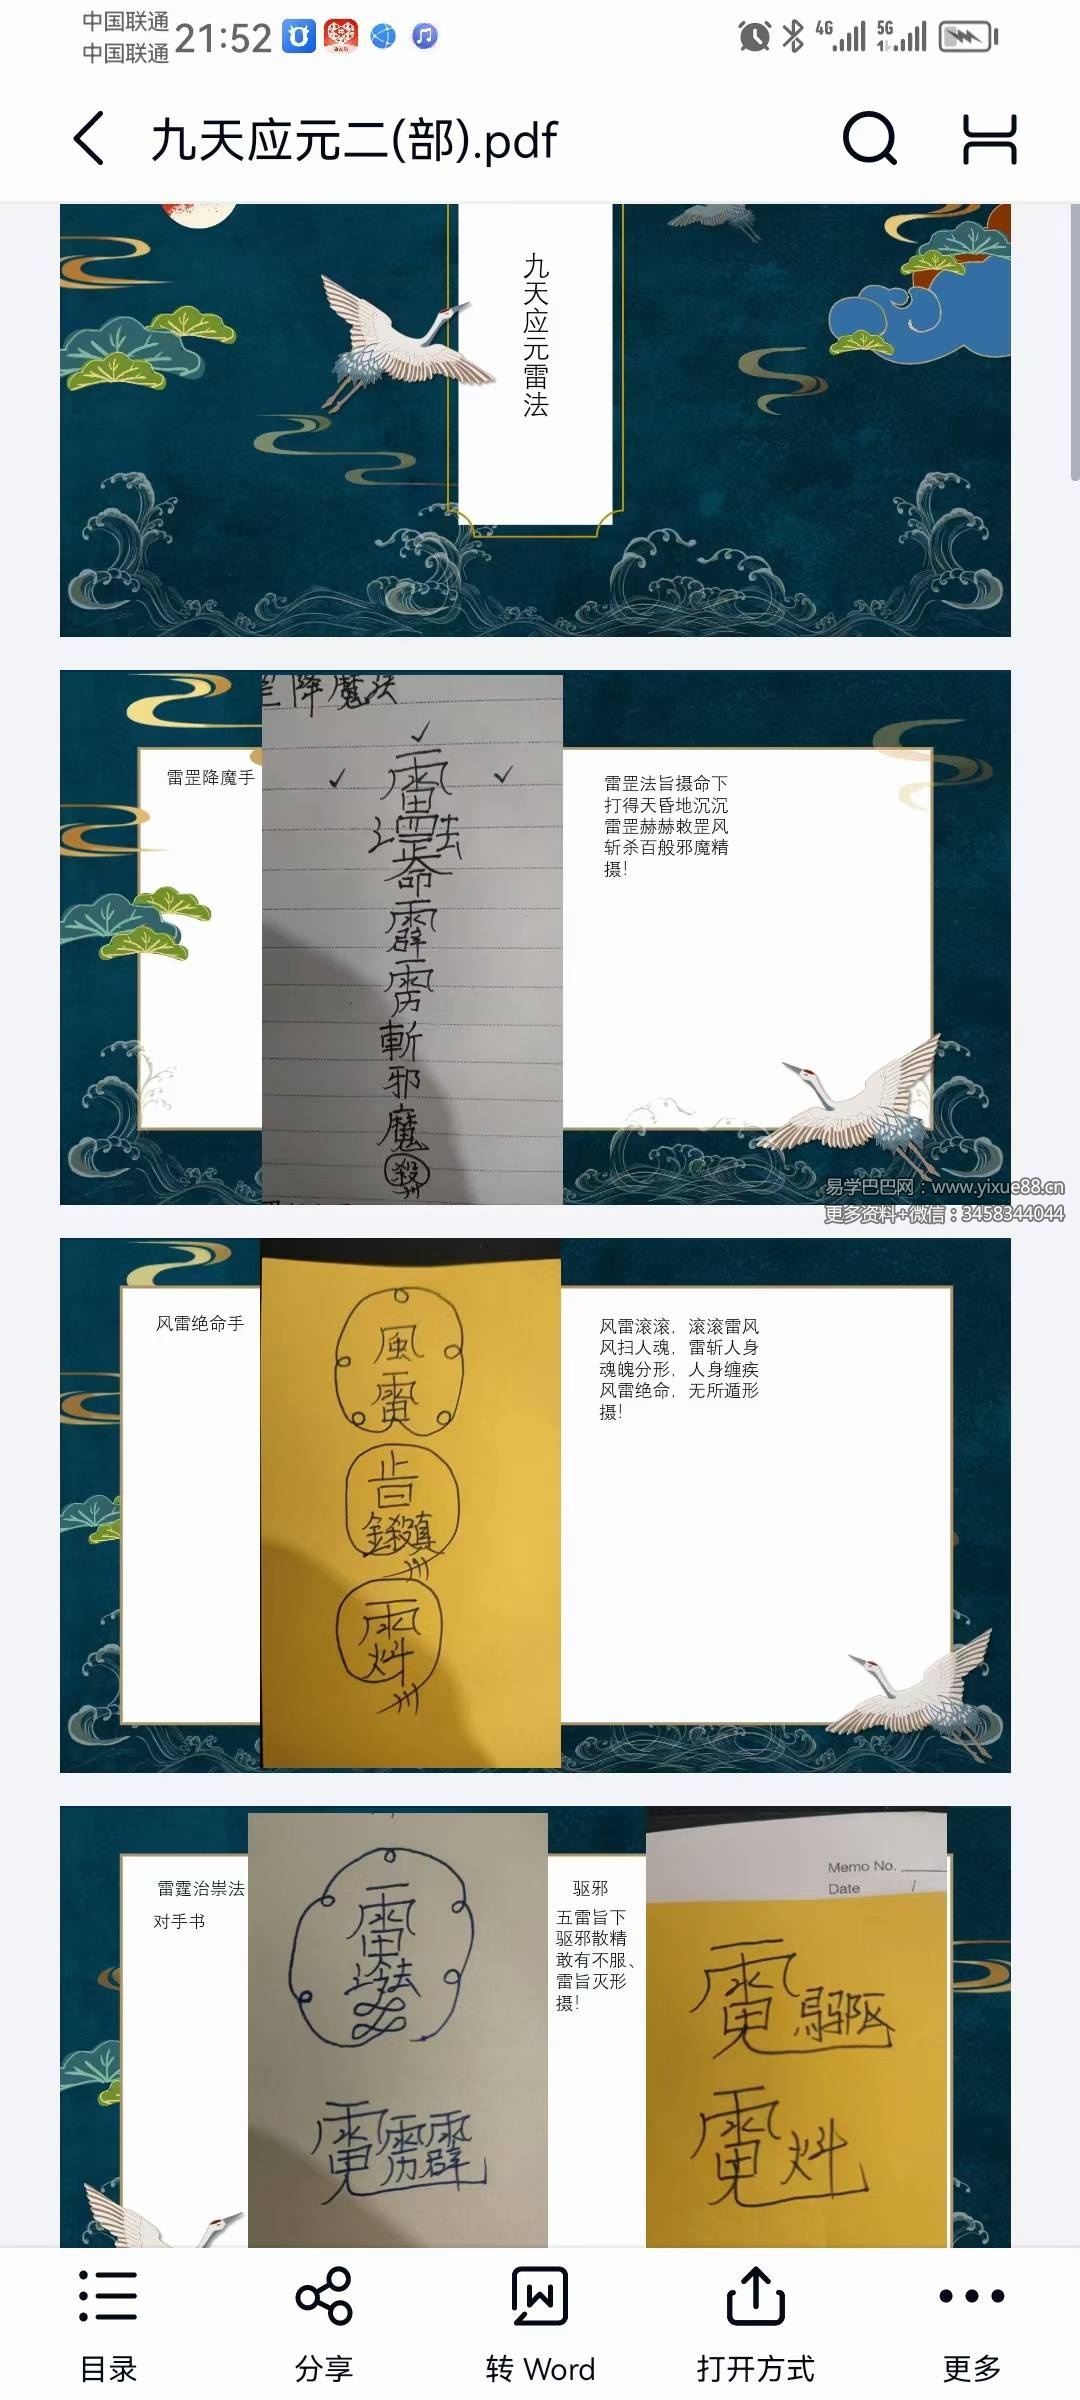 中国联通
中国联通
21:52
4G
5G
九天应元二(部).pdf
九天应元雷法
雷罡降魔手
降魔法
命
霹
雳
斬
邪
魔
殺
雷罡法旨摄命下
打得天昏地沉沉
雷罡赫赫敕罡风
斩杀百般邪魔精
摄!
易学巴巴网：www.yixue88.cn
更多资料+微信：3458344044
风雷绝命手
風
雷
风雷滚滚，滚滚雷风
风扫人魂，雷斩人身
魂魄分形，人身缠疾
风雷绝命，无所遁形
摄!
雷霆治祟法
对手书
驱邪
五雷旨下
驱邪散精
敢有不服、
雷旨灭形
摄!
Memo No.
Date /
目录
分享
转 Word
打开方式
更多